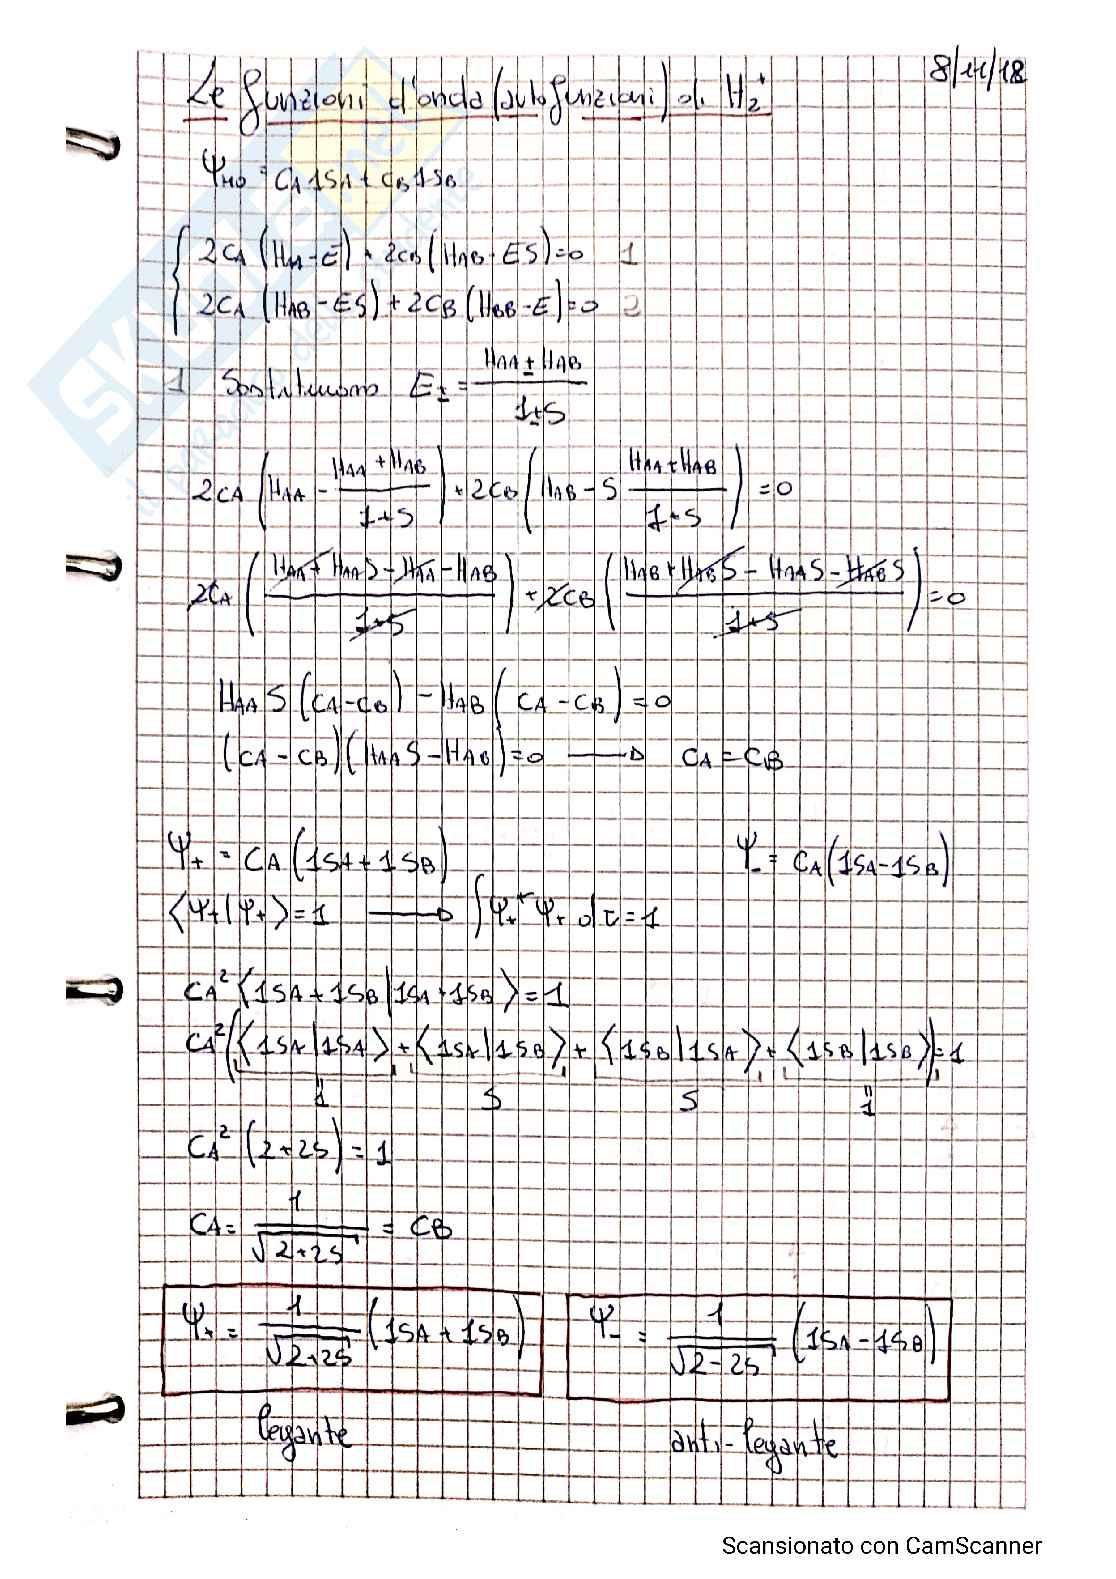 8/11/18
Le funzioni d'onda (autofunzioni) di H₂⁺
Ψ_MO = C_A 1S_A + C_B 1S_B
{ 2C_A (H_AA - E) + 2C_B (H_AB - ES) = 0   1
2C_A (H_AB - ES) + 2C_B (H_BB - E) = 0   2
1 Sostituiamo E_± = (H_AA ± H_AB) / (1 ± S)
2C_A (H_AA - (H_AA + H_AB) / (1+S)) + 2C_B (H_AB - S (H_AA + H_AB) / (1+S)) = 0
2C_A ((H_AA + H_AA S - H_AA - H_AB) / (1+S)) + 2C_B ((H_AB + H_AB S - H_AA S - H_AB S) / (1+S)) = 0
H_AA S (C_A - C_B) - H_AB (C_A - C_B) = 0
(C_A - C_B) (H_AA S - H_AB) = 0 → C_A = C_B
Ψ₊ = C_A (1S_A + 1S_B)   Ψ₋ = C_A (1S_A - 1S_B)
⟨Ψ₊|Ψ₊⟩ = 1 → ∫ Ψ₊* Ψ₊ dτ = 1
C_A² ⟨1S_A + 1S_B | 1S_A + 1S_B⟩ = 1
C_A² (⟨1S_A|1S_A⟩ + ⟨1S_A|1S_B⟩ + ⟨1S_B|1S_A⟩ + ⟨1S_B|1S_B⟩) = 1
1   S   S   1
C_A² (2 + 2S) = 1
C_A = 1 / √(2+2S) = C_B
Ψ₊ = 1 / √(2+2S) (1S_A + 1S_B)   Ψ₋ = 1 / √(2-2S) (1S_A - 1S_B)
legante   anti-legante
Scansionato con CamScanner